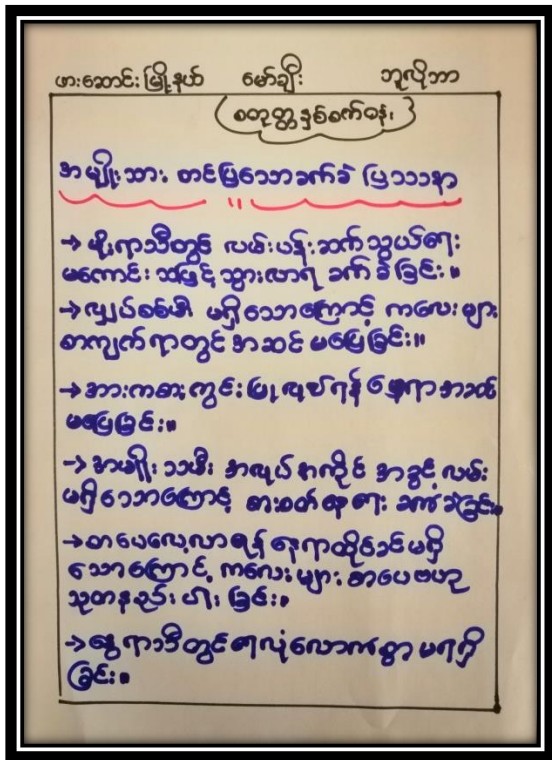 ဖားဆောင်းမြို့နယ် မော်ချီး ဘူလိုဘာ
စတုတ္ထနှစ်ခက်ခန်း
အမျိုးသား တင်ပြသောအခက်ခဲ ပြဿနာ
→ မိုးရာသီတွင် လမ်းပန်းဆက်သွယ်ရေး
မကောင်းသဖြင့် သွားလာရ ခက်ခဲခြင်း။
→ လျှပ်စစ်မီး မရှိသောကြောင့် ကလေးများ
စာကျက်ရာတွင် အဆင်မပြေခြင်း။
→ အားကစားကွင်း ပြုလုပ်ရန် နေရာအဆင်
မပြေခြင်း။
→ အမျိုးသမီး အလုပ်အကိုင် အခွင့်လမ်း
မရှိသောကြောင့် စားဝတ်နေရေး ခက်ခဲခြင်း။
→ စာပေလေ့လာရန် နေရာထိုင်ခင်မရှိ
သောကြောင့် ကလေးများ စာပေဗဟု
သုတနည်းပါးခြင်း။
→ နွေရာသီတွင် ရေလုံလောက်စွာ မရရှိ
ခြင်း။